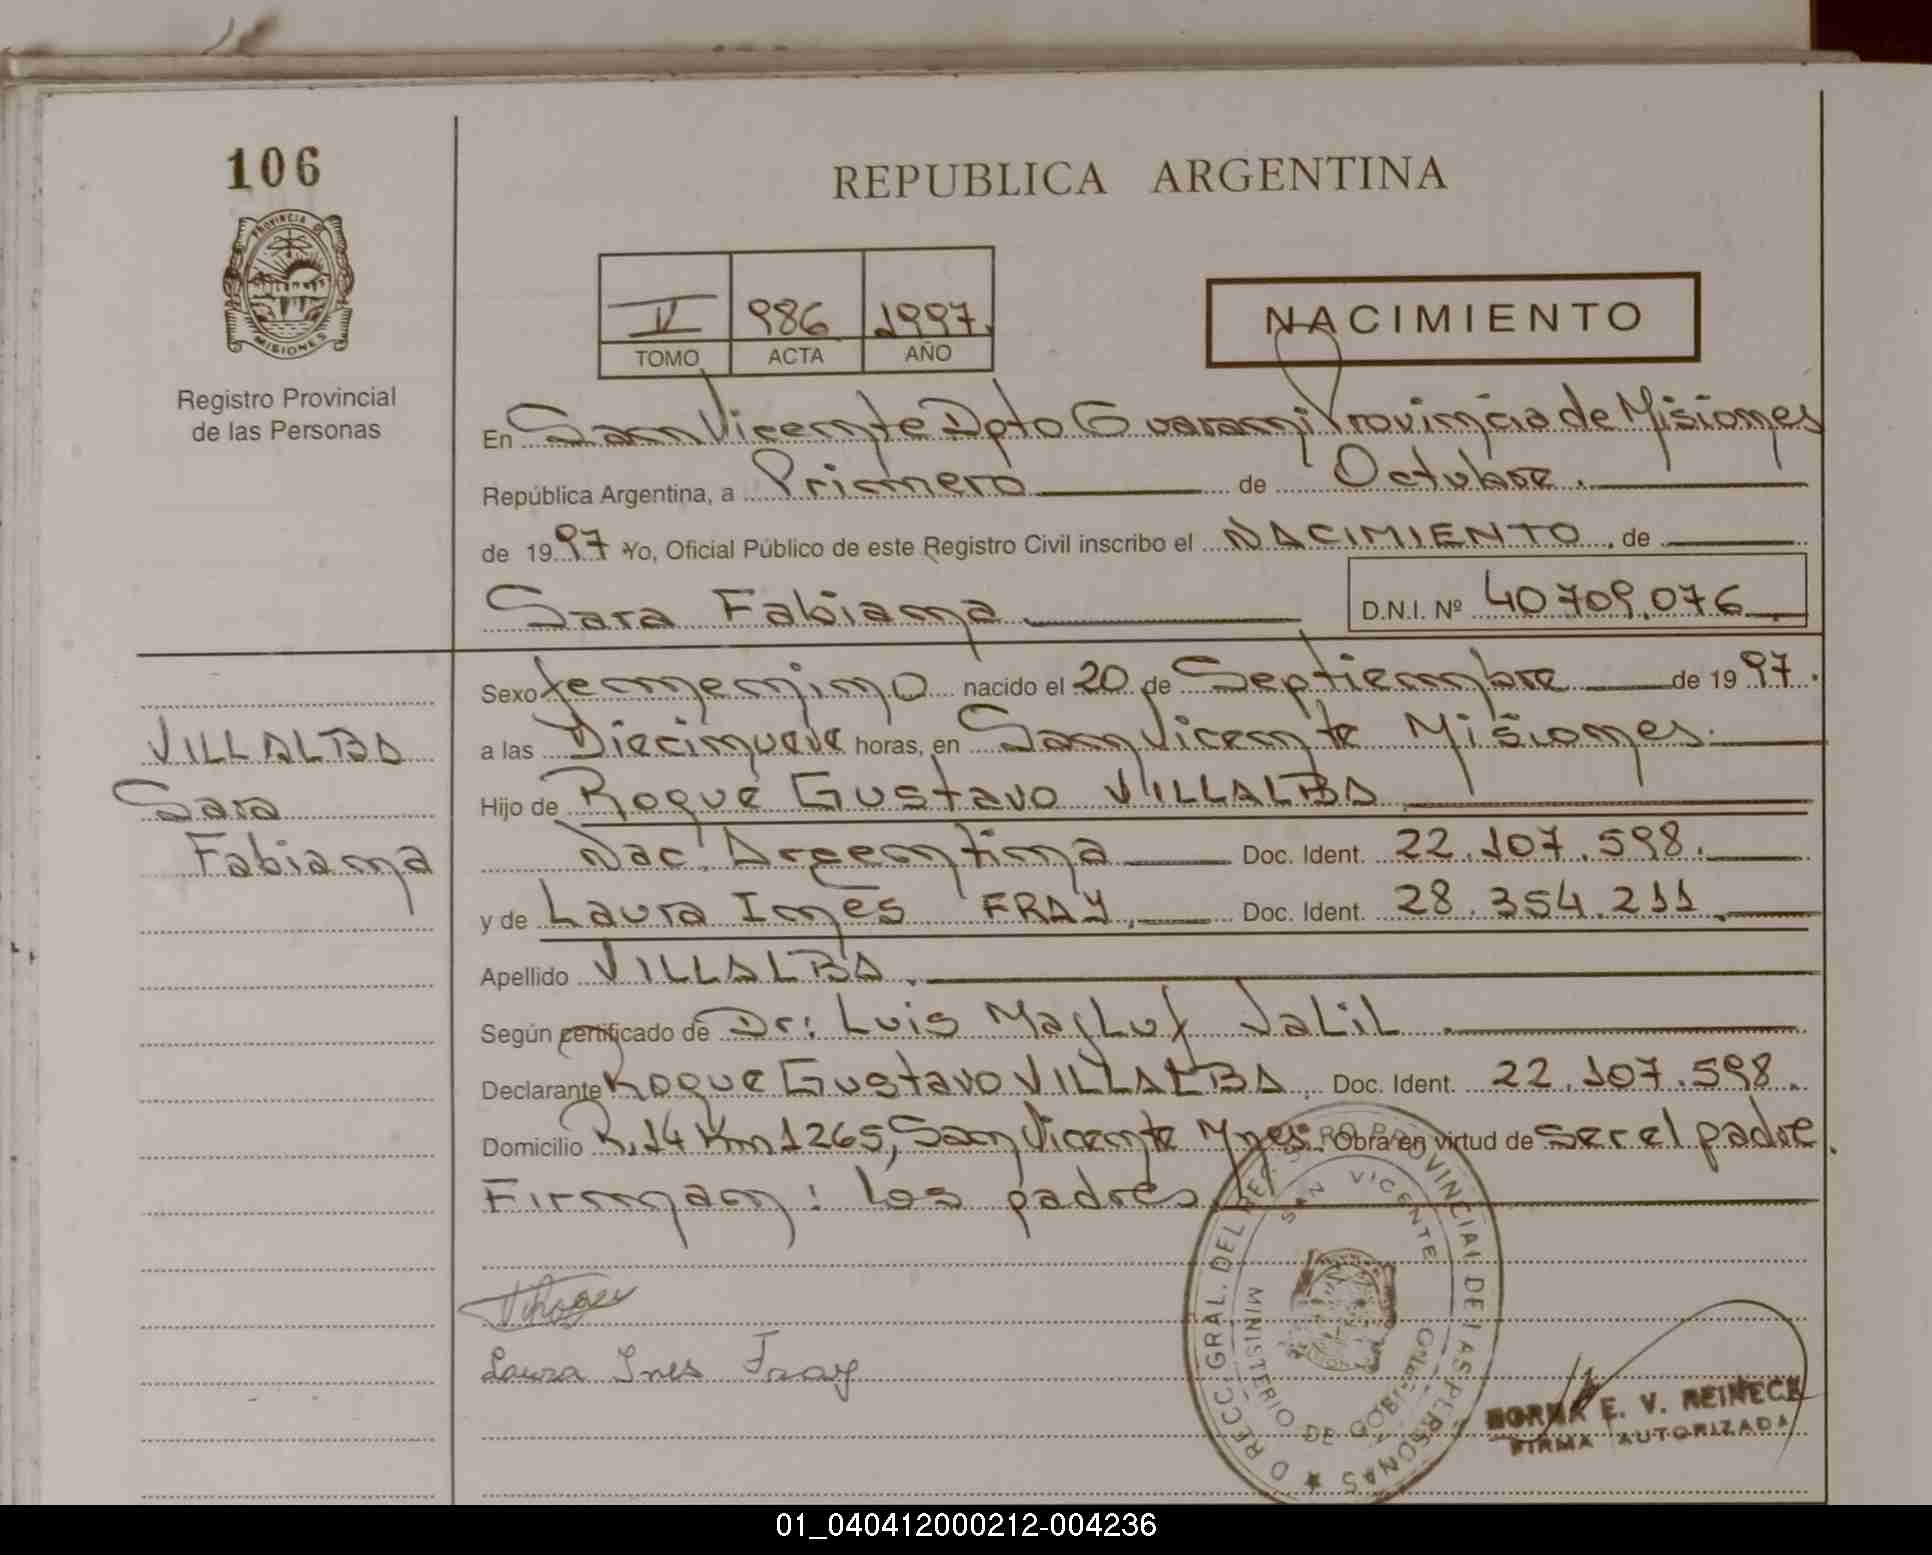 106
PROVINCIA DE
MISIONES
Registro Provincial
de las Personas
REPUBLICA ARGENTINA
V 986 1997.
TOMO ACTA AÑO
NACIMIENTO
En San Vicente Dpto Guarani Provincia de Misiones
República Argentina, a Primero de Octubre.
de 1997 Yo, Oficial Público de este Registro Civil inscribo el NACIMIENTO, de
Sara Fabiana D.N.I. Nº 40709.076
Sexo femenino nacido el 20 de Septiembre de 1997.
VILLALBA
Sara
Fabiana
a las Diecinueve horas, en San Vicente Misiones.
Hijo de Roque Gustavo VILLALBA
Nac. Argentina Doc. Ident. 22.107.598.
y de Laura Ines FRAY, Doc. Ident. 28.354.211
Apellido VILLALBA.
Según certificado de Dr: Luis Majluf JaLiL
Declarante Roque Gustavo VILLALBA, Doc. Ident. 22.107.598.
Domicilio R.14 Km 1265, San Vicente Mnes. Obra en virtud de ser el padre.
Firman: los padres
Laura Ines Fray
DIRECC. GRAL. DEL REGISTRO PROVINCIAL DE LAS PERSONAS
SAN VICENTE
MINISTERIO DE GOBIERNO
NORMA E. V. REINECK
FIRMA AUTORIZADA
01_040412000212-004236